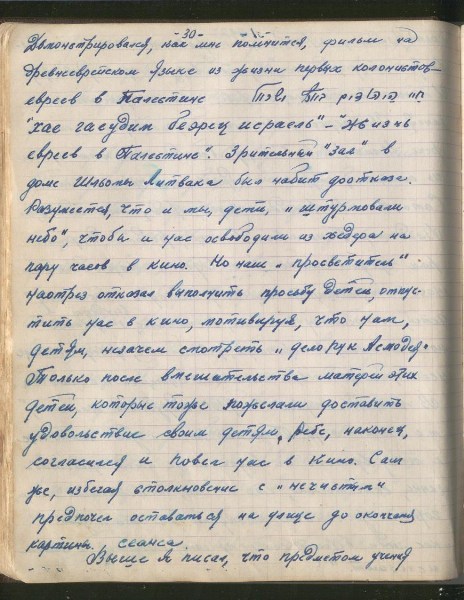 -30-
Демонстрировался, как мне помнится, фильм на
древнееврейском языке из жизни первых колонистов-
евреев в Палестине
"хае гаеудим беэрец исраель" - "Жизнь
евреев в Палестине". Зрительный "зал" в
доме Шльомы Литвака был набит доотказа.
Разумеется, что и мы, дети, "штурмовали
небо", чтобы и нас освободили из хедера на
пару часов в кино. Но наш "просветитель"
наотрез отказал выполнить просьбу детей, отпус-
тить нас в кино, мотивируя, что нам,
детям, незачем смотреть "дело рук Асмодея"
Только после вмешательства матерей этих
детей, которые тоже пожелали доставить
удовольствие своим детям, ребе, наконец,
согласился и повел нас в кино. Сам
же, избегая столкновение с "нечистым"
предпочел оставаться на улице до окончания
картины. сеанса.
Выше я писал, что предметом учения